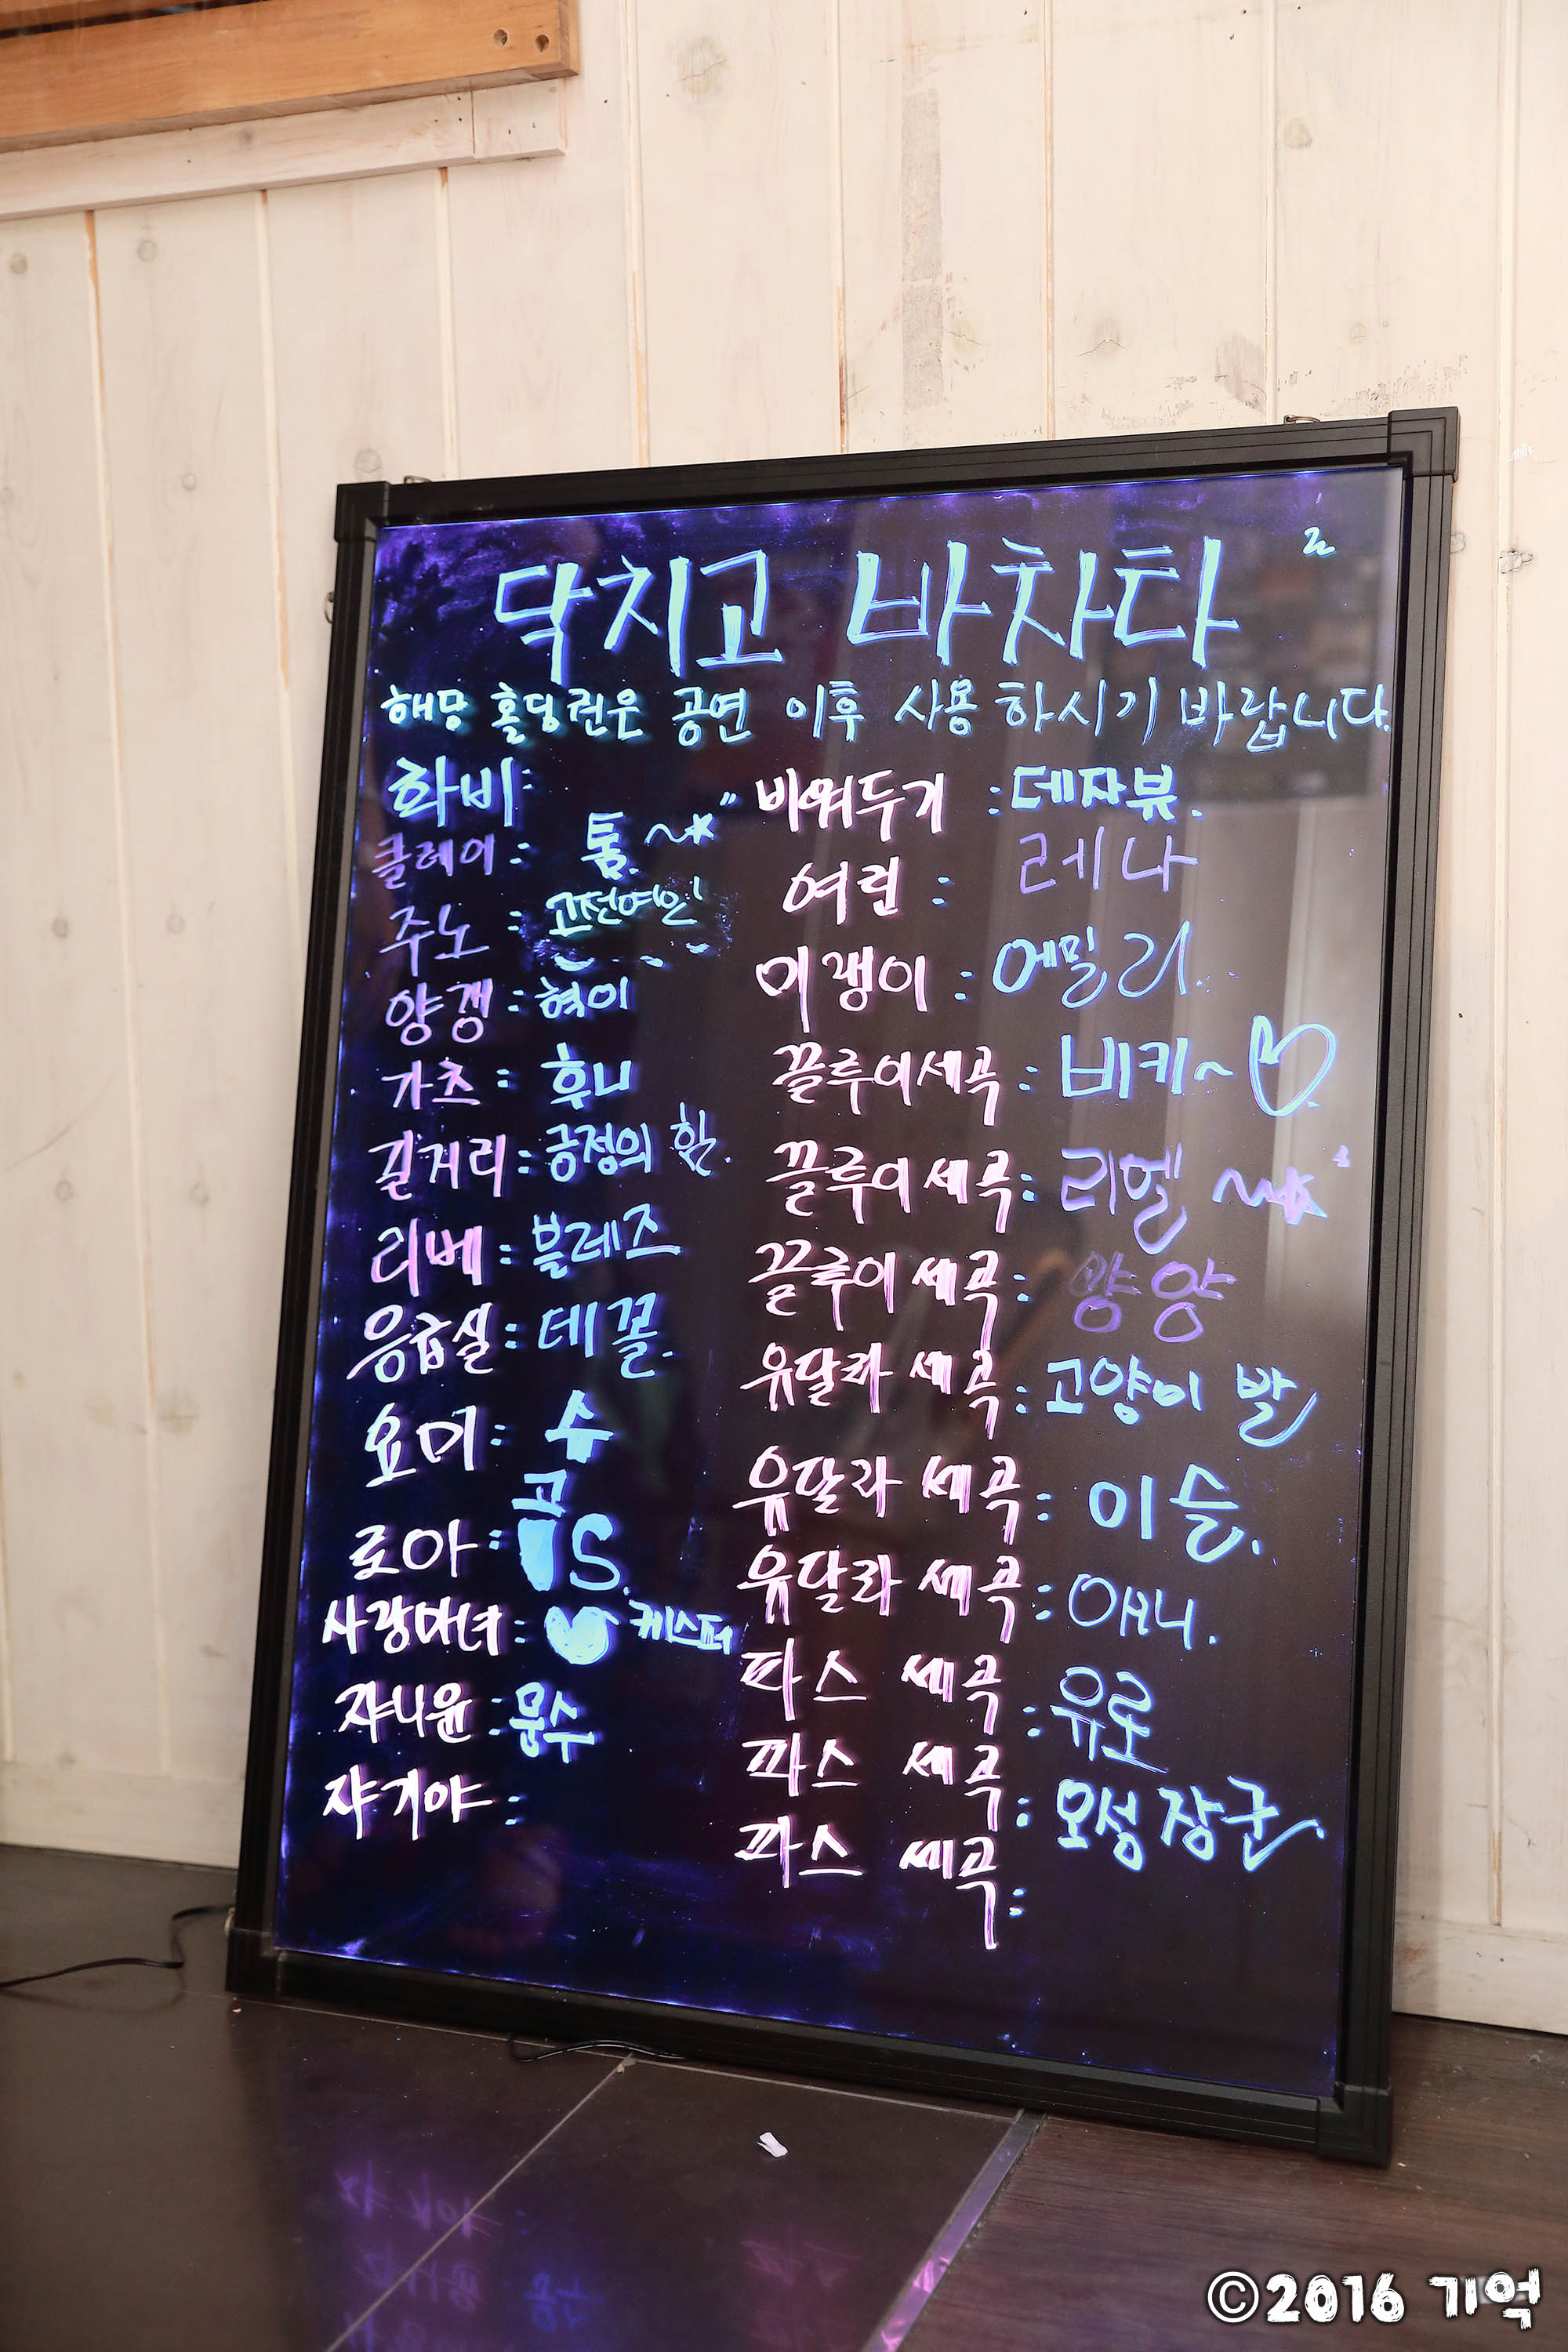 닥치고 바차타
해당 홀딩권은 공연 이후 사용하시기 바랍니다.
화비:
클레이: 톰.~
주노: 고전여인!
양갱: 혀이
가츠: 후니
길거리: 긍정의 힘.
리베: 블레즈
응급실: 데꼴.
요미: 슈
고
로아: S.
사랑마녀: 케스퍼
쟈니윤: 뭉수
쟈기야:
비워두기: 데자뷰.
여린: 레나
이쟁이: 에밀리.
끌루이 세곡: 비키~
끌루이 세곡: 리엘~
끌루이 세곡: 양양
유달라 세곡: 고양이 발
유달라 세곡: 이슬.
유달라 세곡: 애니.
파스 세곡: 유로
파스 세곡: 오성장군.
파스 세곡:
©2016 기억